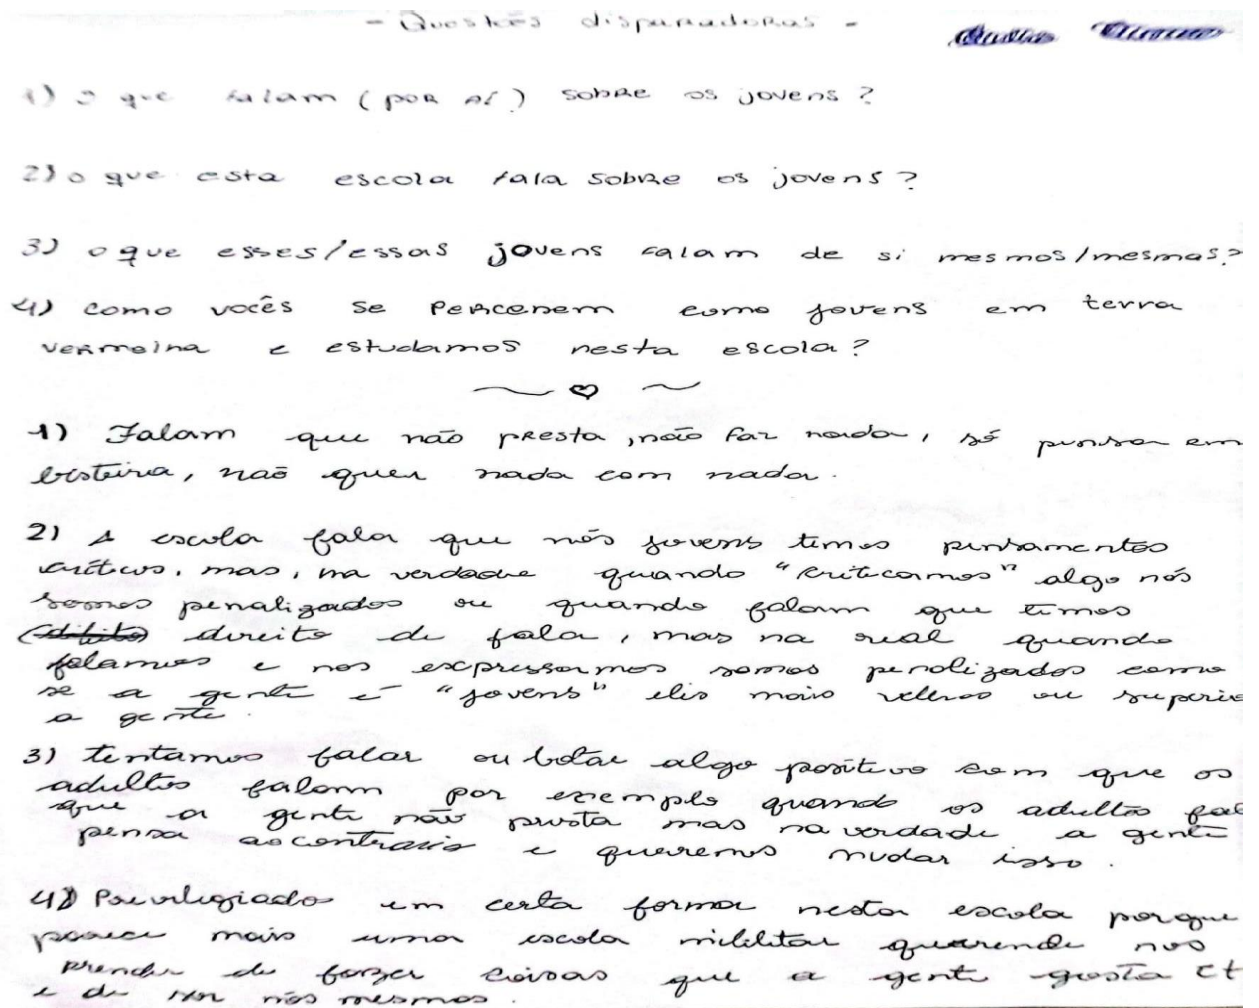 - Questões disparadoras -
1) o que falam (por aí) sobre os jovens?
2) o que esta escola fala sobre os jovens?
3) o que esses/essas jovens falam de si mesmos/mesmas?
4) como vocês se percebem como jovens em terra
vermelha e estudamos nesta escola?
1) Falam que não presta, não faz nada, só pensa em
besteira, não quer nada com nada.
2) A escola fala que nós jovens temos pensamentos
críticos, mas, na verdade quando "criticamos" algo nós
somos penalizados ou quando falam que temos
direito de fala, mas na real quando
falamos e nos expressarmos somos penalizados como
se a gente é "jovens" eles mais velhos ou superio
a gente.
3) tentamos falar ou botar algo positivo com que os
adultos falam por exemplo quando os adultos fal
que a gente não presta mas na verdade a gente
pensa ao contrario e queremos mudar isso.
4) Privilegiado em certa forma nesta escola porque
parece mais uma escola militar querendo nos
prender de fazer coisas que a gente gosta et
e de ser nós mesmos.